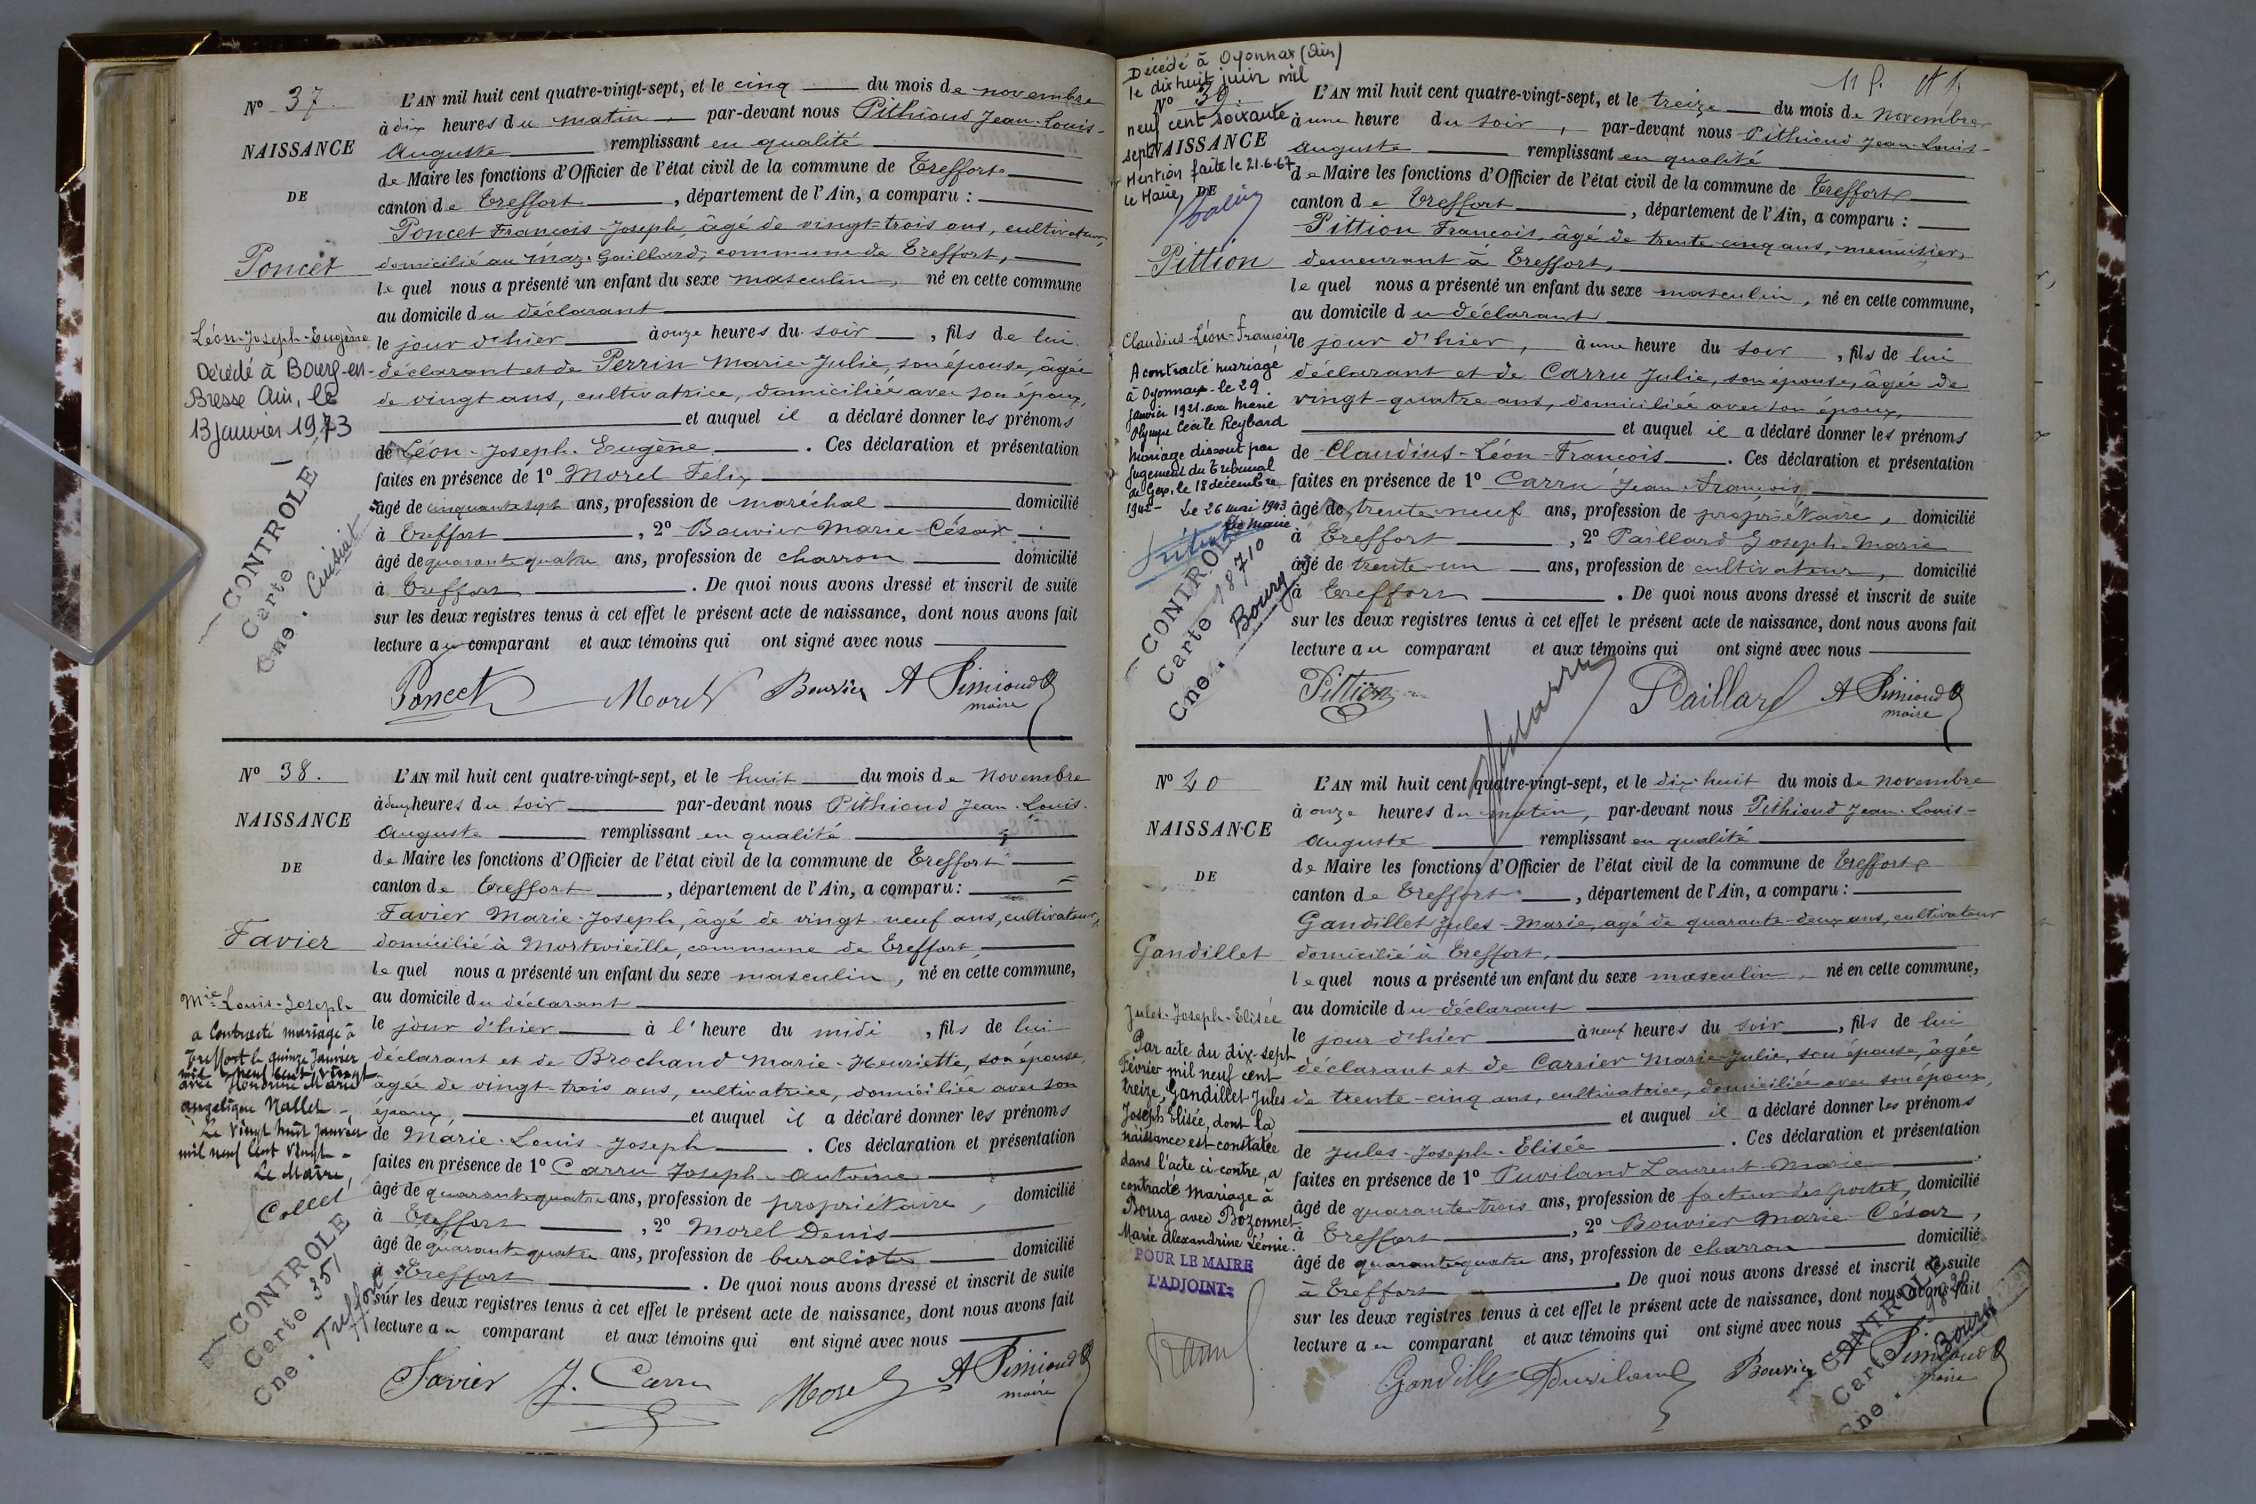 N° 37.
NAISSANCE
DE
Poncet
Léon-Joseph-Eugène
Décédé à Bourg-en-
Bresse Ain, le
13 janvier 1973
CONTROLE
Carte
Cne. Cuisiat
L'AN mil huit cent quatre-vingt-sept, et le cinq du mois de novembre
à dix heures du matin, par-devant nous Pithioud Jean-Louis-
Auguste remplissant en qualité
de Maire les fonctions d'Officier de l'état civil de la commune de Treffort
canton de Treffort, département de l'Ain, a comparu :
Poncet François-Joseph, âgé de vingt-trois ans, cultivateur,
domicilié au Maz-Gaillard, commune de Treffort,
lequel nous a présenté un enfant du sexe masculin, né en cette commune
au domicile du déclarant
le jour d'hier à onze heures du soir, fils de lui
déclarant et de Perrin Marie-Julie, son épouse, âgée
de vingt ans, cultivatrice, domiciliée avec son époux,
et auquel il a déclaré donner les prénoms
de Léon-Joseph-Eugène. Ces déclaration et présentation
faites en présence de 1° Morel Félix
âgé de cinquante sept ans, profession de maréchal domicilié
à Treffort, 2° Bouvier Marie-César
âgé de quarante quatre ans, profession de charron domicilié
à Treffort. De quoi nous avons dressé et inscrit de suite
sur les deux registres tenus à cet effet le présent acte de naissance, dont nous avons fait
lecture au comparant et aux témoins qui ont signé avec nous
Poncet Morel Bouvier
maire
N° 38.
NAISSANCE
DE
Favier
Mie-Louis-Joseph
a Contracté mariage à
Treffort le quinze Janvier
mil neuf Cent vingt
avec Honorine Marie
angelique Nallet
Le Vingt huit Janvier
mil neuf Cent Vingt
Le Maire,
Collet
CONTROLE
Carte 351
Cne. Treffort
L'AN mil huit cent quatre-vingt-sept, et le huit du mois de Novembre
à deux heures du soir par-devant nous Pithioud Jean-Louis-
Auguste remplissant en qualité
de Maire les fonctions d'Officier de l'état civil de la commune de Treffort
canton de Treffort, département de l'Ain, a comparu :
Favier Marie-Joseph, âgé de vingt-neuf ans, cultivateur,
domicilié à Montvieille, commune de Treffort,
lequel nous a présenté un enfant du sexe masculin, né en cette commune,
au domicile du déclarant
le jour d'hier à l'heure du midi, fils de lui
déclarant et de Brochand Marie-Henriette, son épouse,
âgée de vingt-trois ans, cultivatrice, domiciliée avec son
époux, et auquel il a déclaré donner les prénoms
de Marie-Louis-Joseph. Ces déclaration et présentation
faites en présence de 1° Carru Joseph-Antoine
âgé de quarante quatre ans, profession de propriétaire, domicilié
à Treffort, 2° Morel Denis
âgé de quarante quatre ans, profession de buraliste domicilié
à Treffort. De quoi nous avons dressé et inscrit de suite
sur les deux registres tenus à cet effet le présent acte de naissance, dont nous avons fait
lecture au comparant et aux témoins qui ont signé avec nous
Favier J. Carru Morel
maire
Décédé à Oyonnax (Ain)
le dix huit juin mil
neuf cent soixante
sept
Mention faite le 21.6.67
Le Maire,
N° 39.
NAISSANCE
DE
Pittion
Claudius-Léon-François
A contracté mariage
à Oyonnax le 29
janvier 1921 avec Marie
Olympe Cécile Reybard
Mariage dissout par
Jugement du Tribunal
de Gex, le 18 décembre
1942 - Le 26 mai 1943
Le Maire
CONTROLE
Carte 18710
Cne. Bourg
L'AN mil huit cent quatre-vingt-sept, et le treize du mois de Novembre
à une heure du soir, par-devant nous Pithioud Jean-Louis-
Auguste remplissant en qualité
de Maire les fonctions d'Officier de l'état civil de la commune de Treffort
canton de Treffort, département de l'Ain, a comparu :
Pittion François, âgé de trente-cinq ans, menuisier
demeurant à Treffort,
lequel nous a présenté un enfant du sexe masculin, né en cette commune,
au domicile du déclarant
le jour d'hier, à une heure du soir, fils de lui
déclarant et de Carru Julie, son épouse, âgée de
vingt-quatre ans, domiciliée avec son époux,
et auquel il a déclaré donner les prénoms
de Claudius-Léon-François. Ces déclaration et présentation
faites en présence de 1° Carru Jean-François,
âgé de trente-neuf ans, profession de propriétaire, domicilié
à Treffort, 2° Paillard Joseph-Marie
âgé de trente-un ans, profession de cultivateur, domicilié
à Treffort. De quoi nous avons dressé et inscrit de suite
sur les deux registres tenus à cet effet le présent acte de naissance, dont nous avons fait
lecture au comparant et aux témoins qui ont signé avec nous
Pittion Paillard
maire
N° 40
NAISSANCE
DE
Gandillet
Jules-Joseph-Elisée
Par acte du dix-sept
Février mil neuf cent
treize, Gandillet Jules
Joseph Elisée, dont la
naissance est constatée
dans l'acte ci-contre, a
contracté mariage à
Bourg avec Bozonnet
Marie Alexandrine Léonie.
POUR LE MAIRE
L'ADJOINT:
L'AN mil huit cent quatre-vingt-sept, et le dix-huit du mois de Novembre
à onze heures du matin, par-devant nous Pithioud Jean-Louis-
Auguste remplissant en qualité
de Maire les fonctions d'Officier de l'état civil de la commune de Treffort
canton de Treffort, département de l'Ain, a comparu :
Gandillet Jules-Marie, âgé de quarante-deux ans, cultivateur
domicilié à Treffort,
lequel nous a présenté un enfant du sexe masculin, né en cette commune,
au domicile du déclarant
le jour d'hier à neuf heures du soir, fils de lui
déclarant et de Carrier Marie-Julie, son épouse, âgée
de trente-cinq ans, cultivatrice, domiciliée avec son époux,
et auquel il a déclaré donner les prénoms
de Jules-Joseph-Elisée. Ces déclaration et présentation
faites en présence de 1° Puviland Laurent-Marie
âgé de quarante-trois ans, profession de facteur des postes, domicilié
à Treffort, 2° Bouvier Marie-César,
âgé de quarante quatre ans, profession de charron domicilié
à Treffort. De quoi nous avons dressé et inscrit de suite
sur les deux registres tenus à cet effet le présent acte de naissance, dont nous avons fait
lecture au comparant et aux témoins qui ont signé avec nous
Gandillet Puviland Bouvier
maire
CONTROLE
Carte
Cne. Bourg